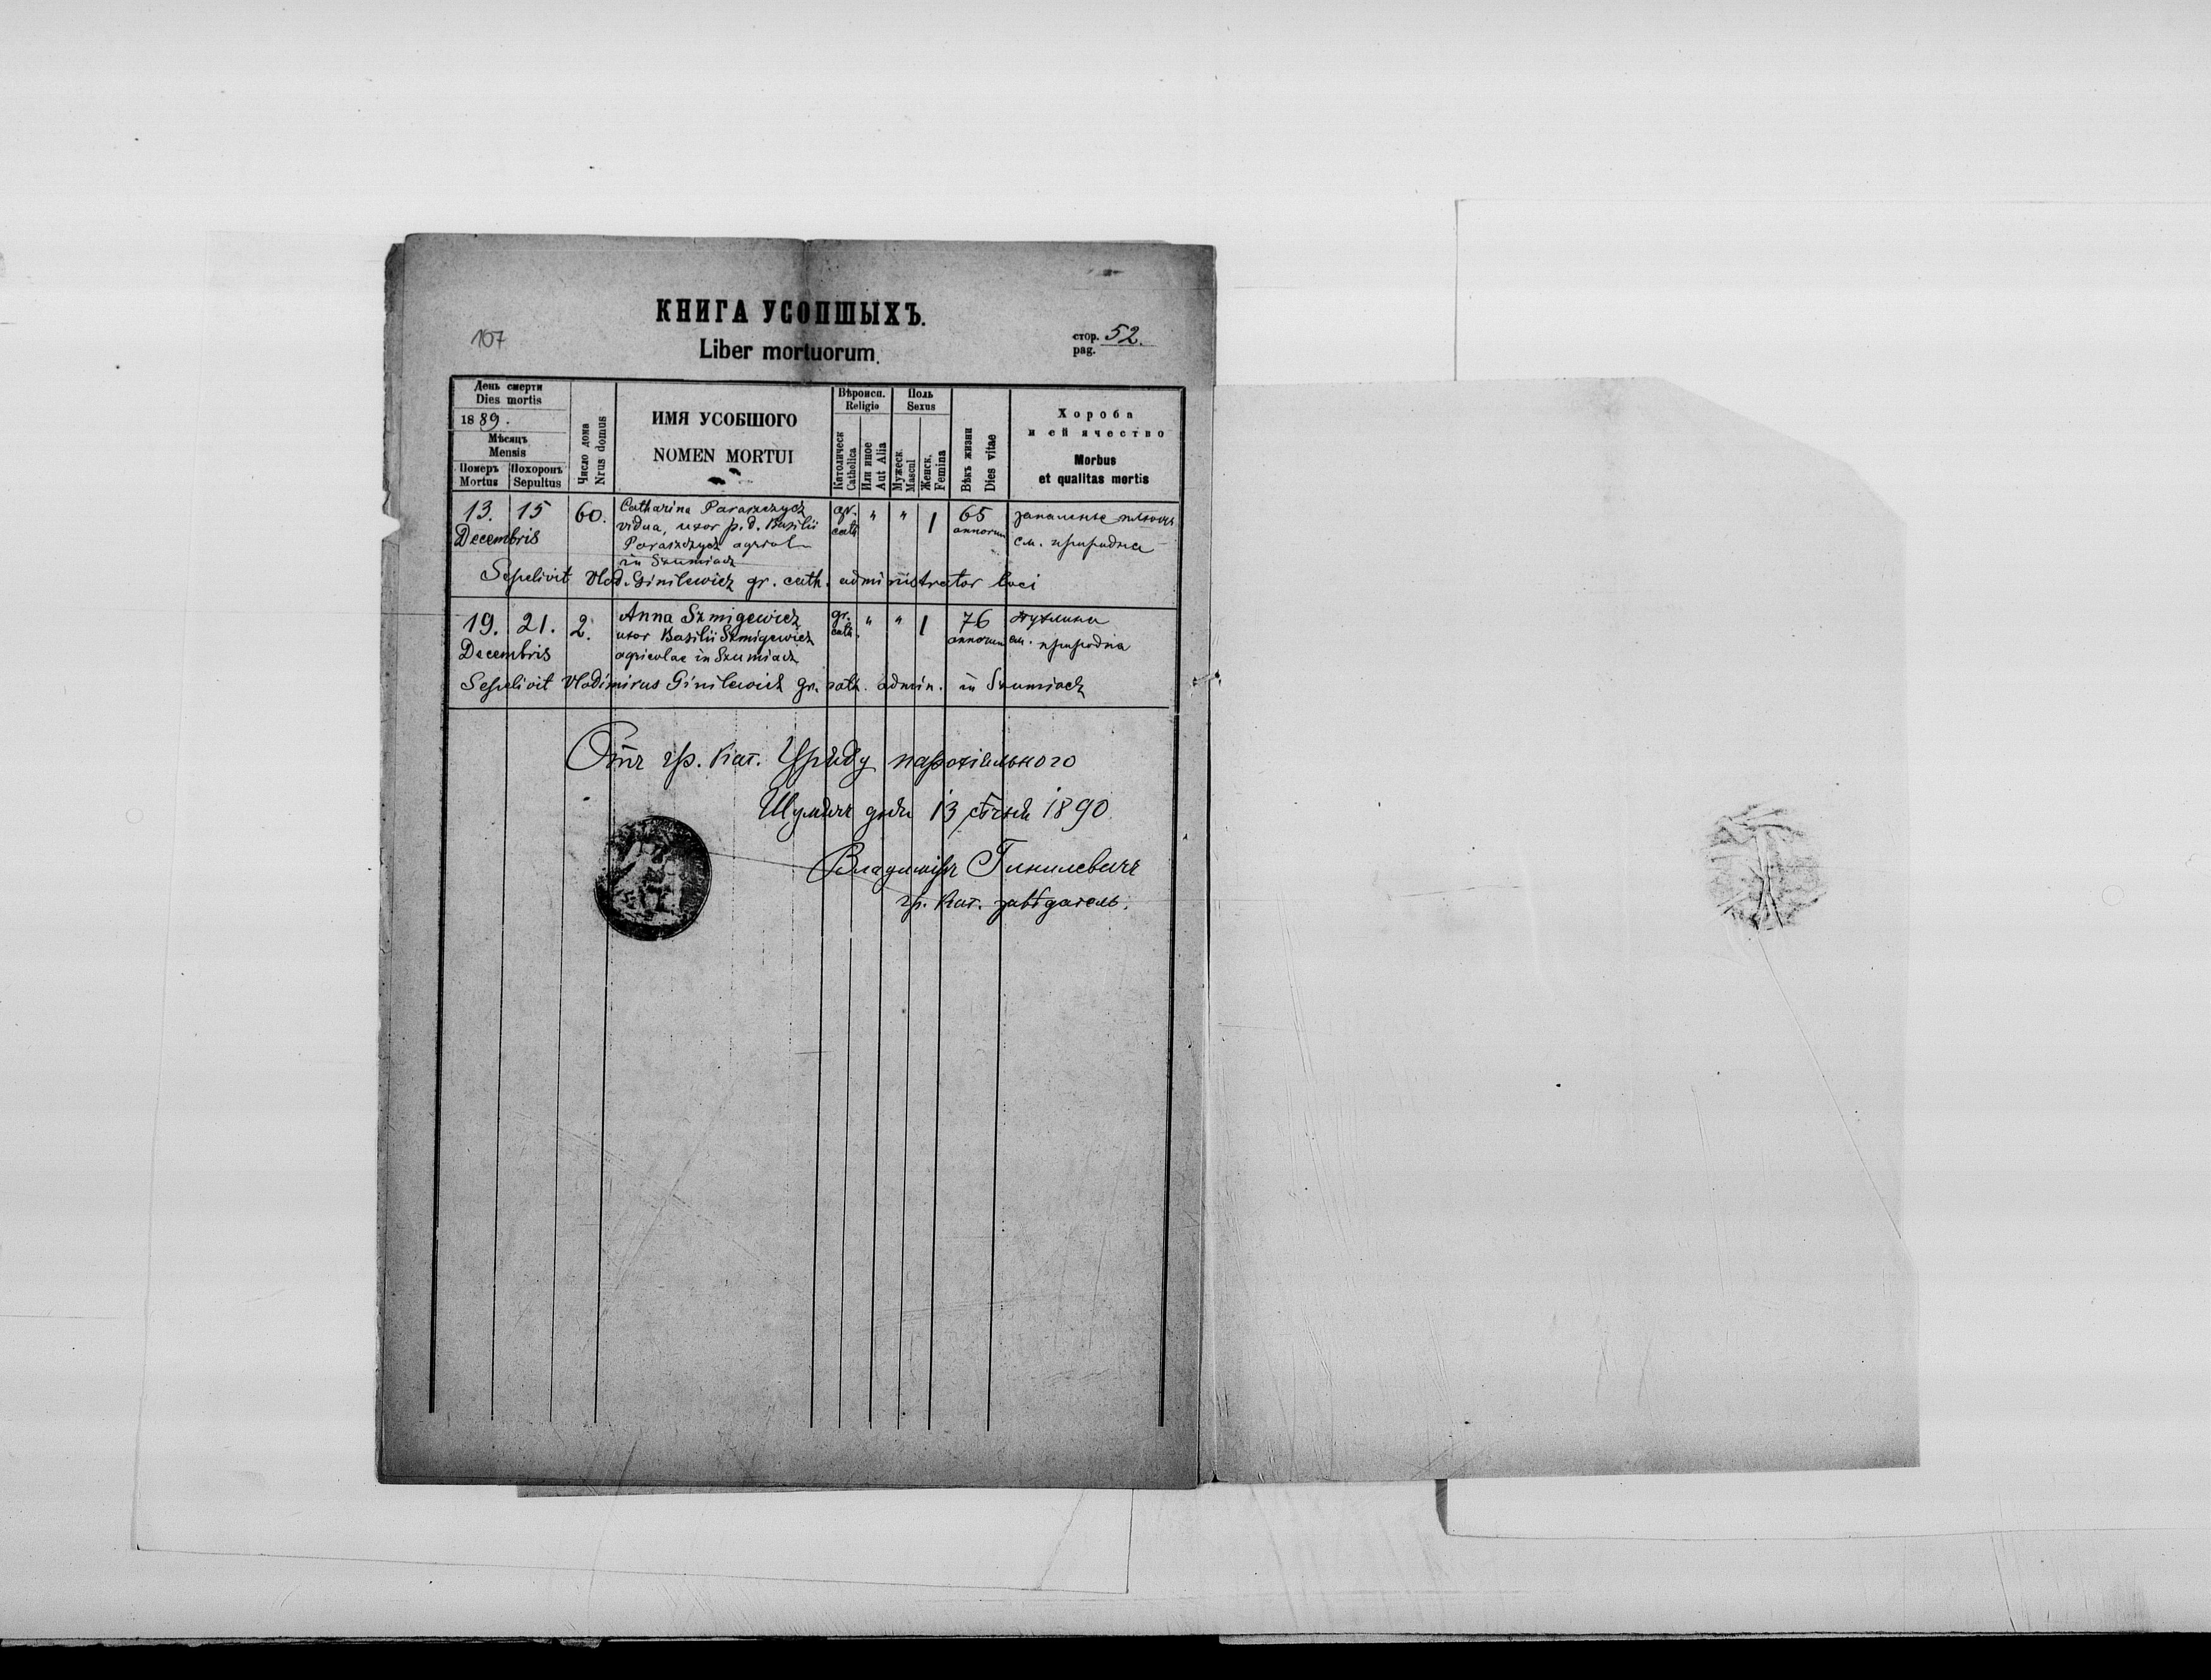 КНИГА УСОПШЫХЪ.
107
Liber mortuorum.
стор. 52.
pag.
День смерти
Dies mortis
1889.
Мѣсяцъ
Mensis
Померъ Похоронъ
Mortus Sepultus
Число дома
Nrus domus
ИМЯ УСОБШОГО
NOMEN MORTUI
Вѣроисп.
Religio
Католическ
Catholica
Или иное
Aut Alia
Поль
Sexus
Мужеск.
Mascul
Женск.
Femina
Вѣкъ жизни
Dies vitae
Хороба
и ей ячество
Morbus
et qualitas mortis
13. 15 60. Catharina Paraszczycz gr. " " 1 65 запаленье
vidua, uxor p. d. Basilii cath annorum см. природна
Decembris Paraszczycz agricol
in Szumiacz
Sepelivit Vlad. Ginilewicz gr. cath. administrator loci
19. 21. 2. Anna Szmigewicz gr. " " 1 76 пухлина
uxor Basilii Szmigewicz cath. annorum см. природна
Decembris agricolae in Szumiacz
Sepelivit Vladimirus Ginilewicz gr. cath. admin. in Szumiacz
Отъ гр. кат. Уряду парохіяльного
Шумячъ дня 13 сѣчня 1890.
Владиміръ Гинилевичъ
гр. кат. завѣдатель.